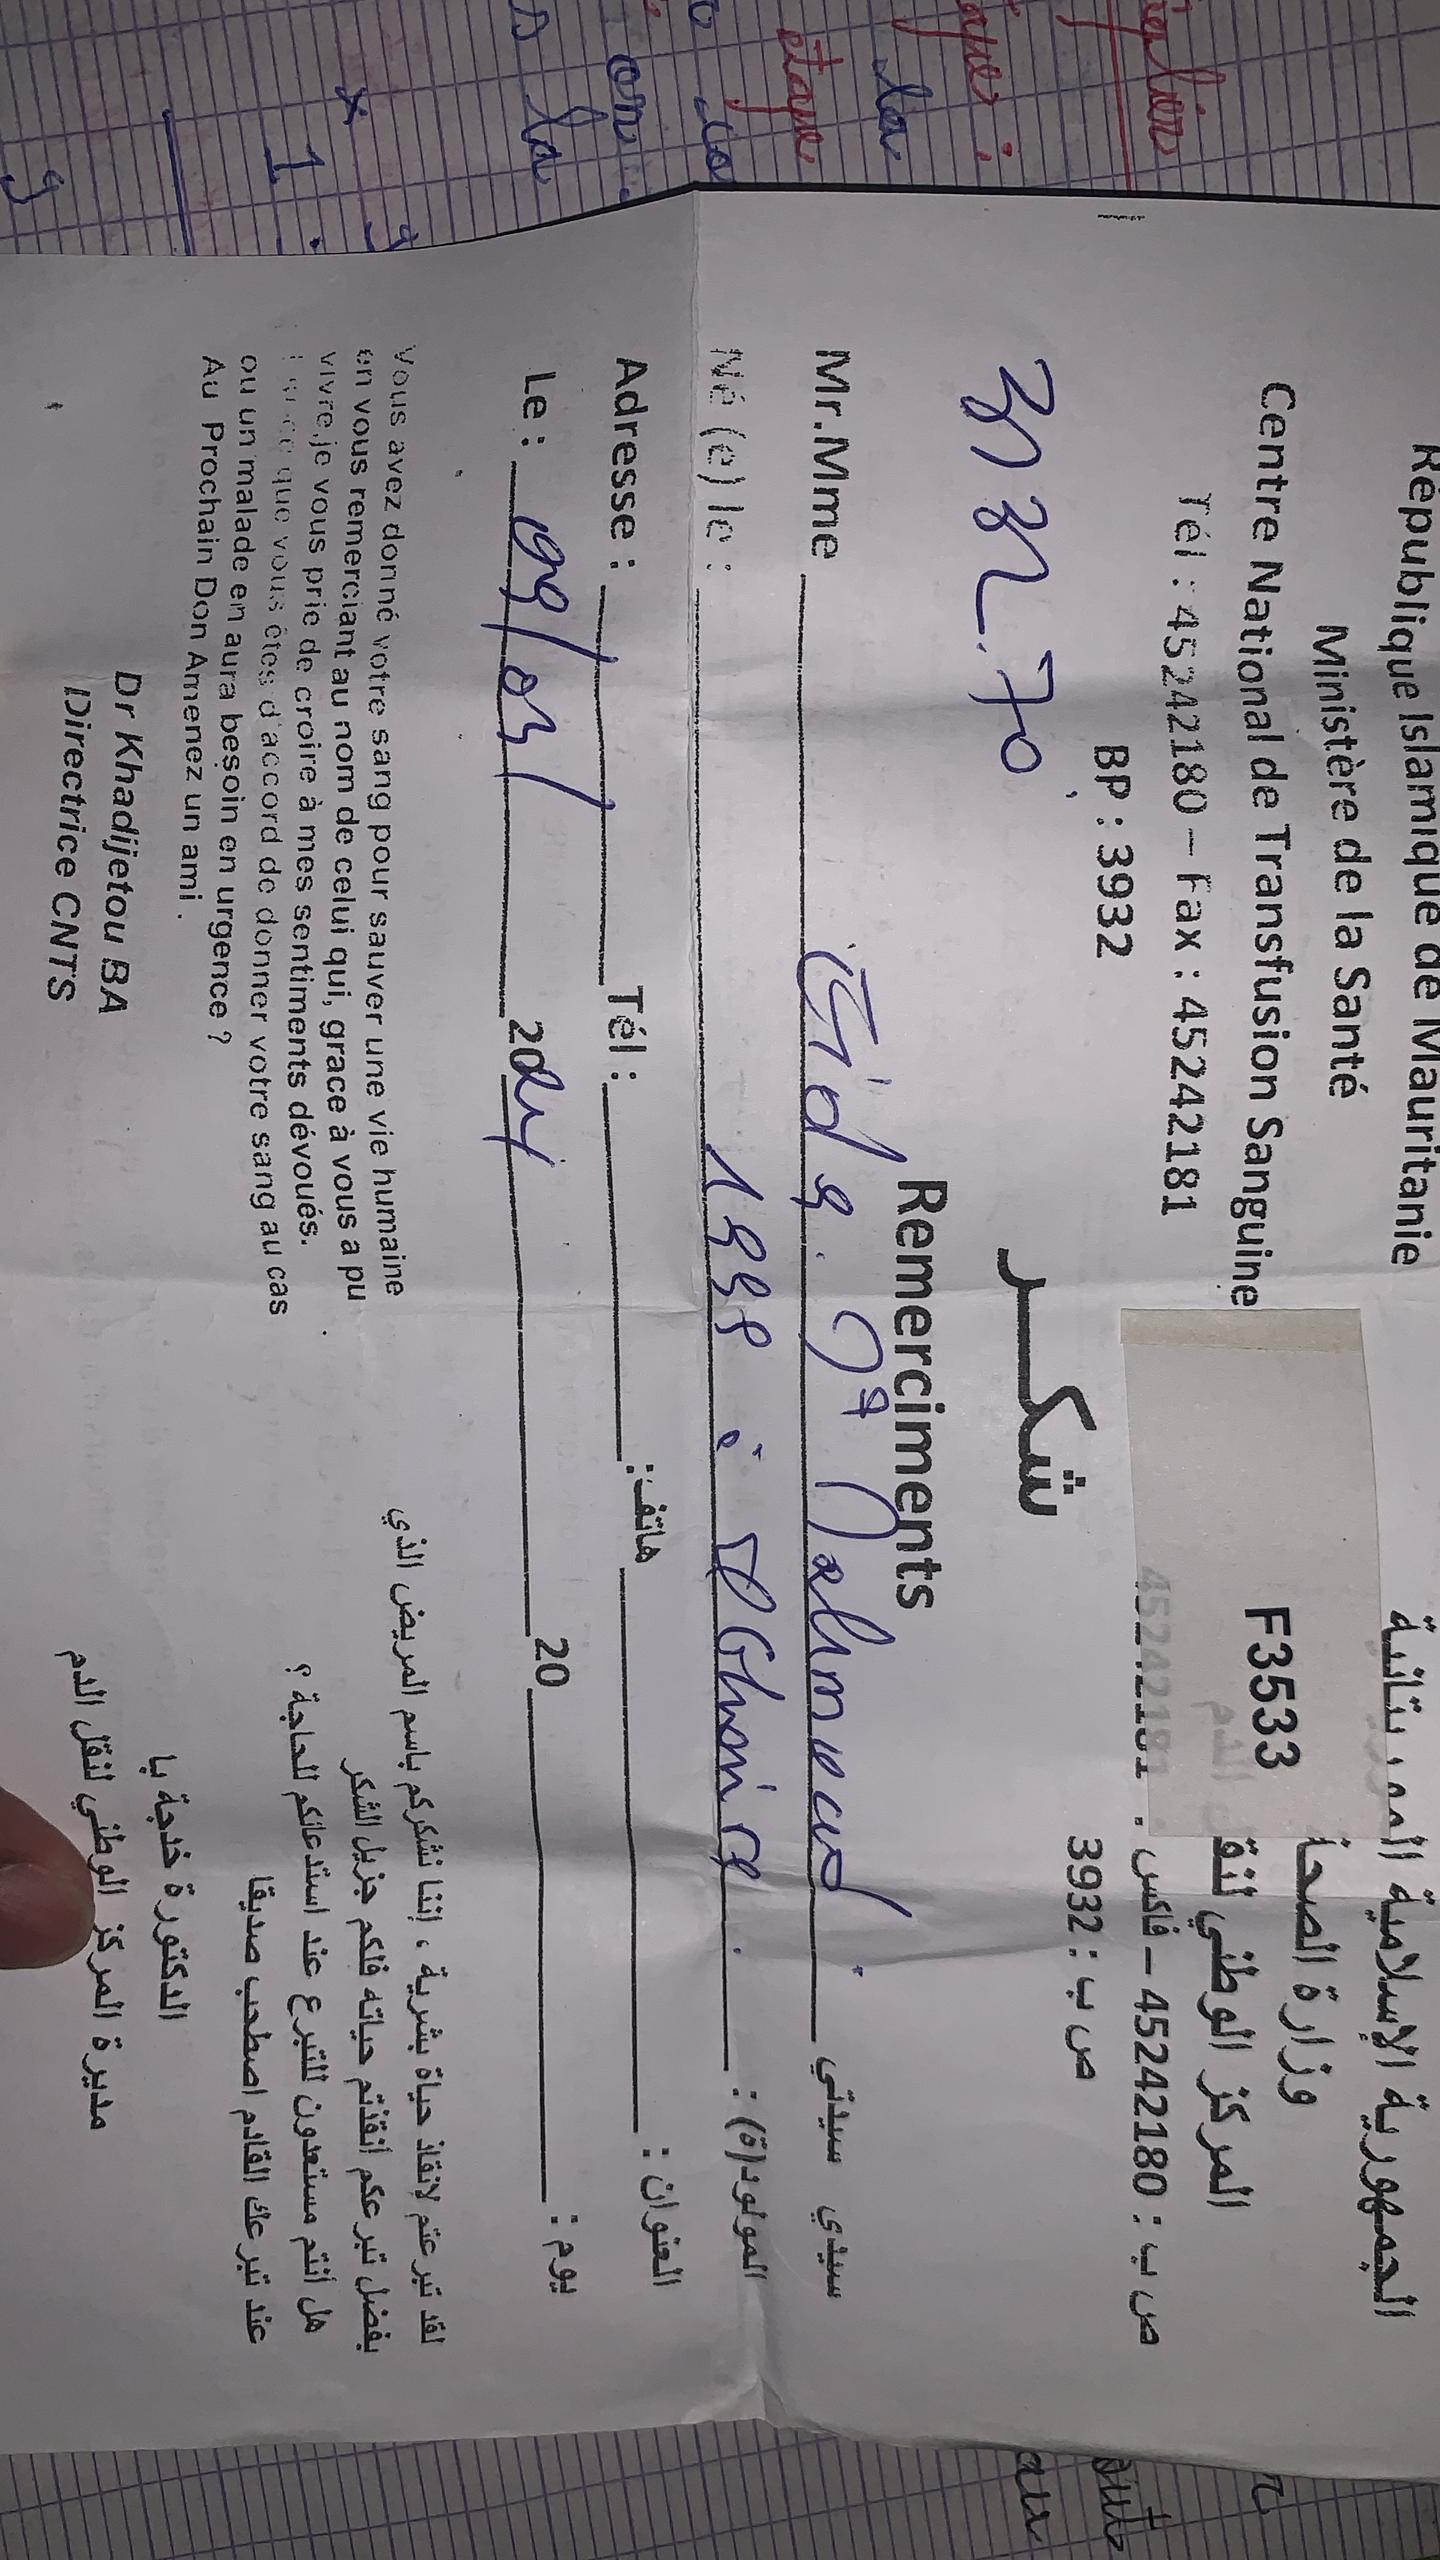 République Islamique de Mauritanie
Ministère de la Santé
Centre National de Transfusion Sanguine
Tél : 45242180 – Fax : 45242181
BP : 3932
الجمهورية الإسلامية الموريتانية
وزارة الصحة
المركز الوطني لنقل الدم
ص ب : 45242180 – فاكس : 45242181
ص ب : 3932
F3533
شكر
Remerciments
Mr.Mme Mahmoud سيدي سيدتي
Né (e) le : 1999 à المولود(ة) :
Adresse : Tél : هاتف: العنوان :
Le : 09/03/ 2024 20 يوم :
Vous avez donné votre sang pour sauver une vie humaine
en vous remerciant au nom de celui qui, grace à vous a pu
vivre,je vous prie de croire à mes sentiments dévoués.
que vous êtes d'accord de donner votre sang au cas
ou un malade en aura besoin en urgence ?
Au Prochain Don Amenez un ami .
Dr Khadijetou BA
Directrice CNTS
لقد تبرعتم لانقاذ حياة بشرية ، إننا نشكركم باسم المريض الذي
بفضل تبرعكم أنقذتم حياته فلكم جزيل الشكر
هل أنتم مستعدون للتبرع عند استدعائكم للحاجة ؟
عند تبرعك القادم اصطحب صديقا
الدكتورة خدجة با
مديرة المركز الوطني لنقل الدم
la
étape
on
la
1